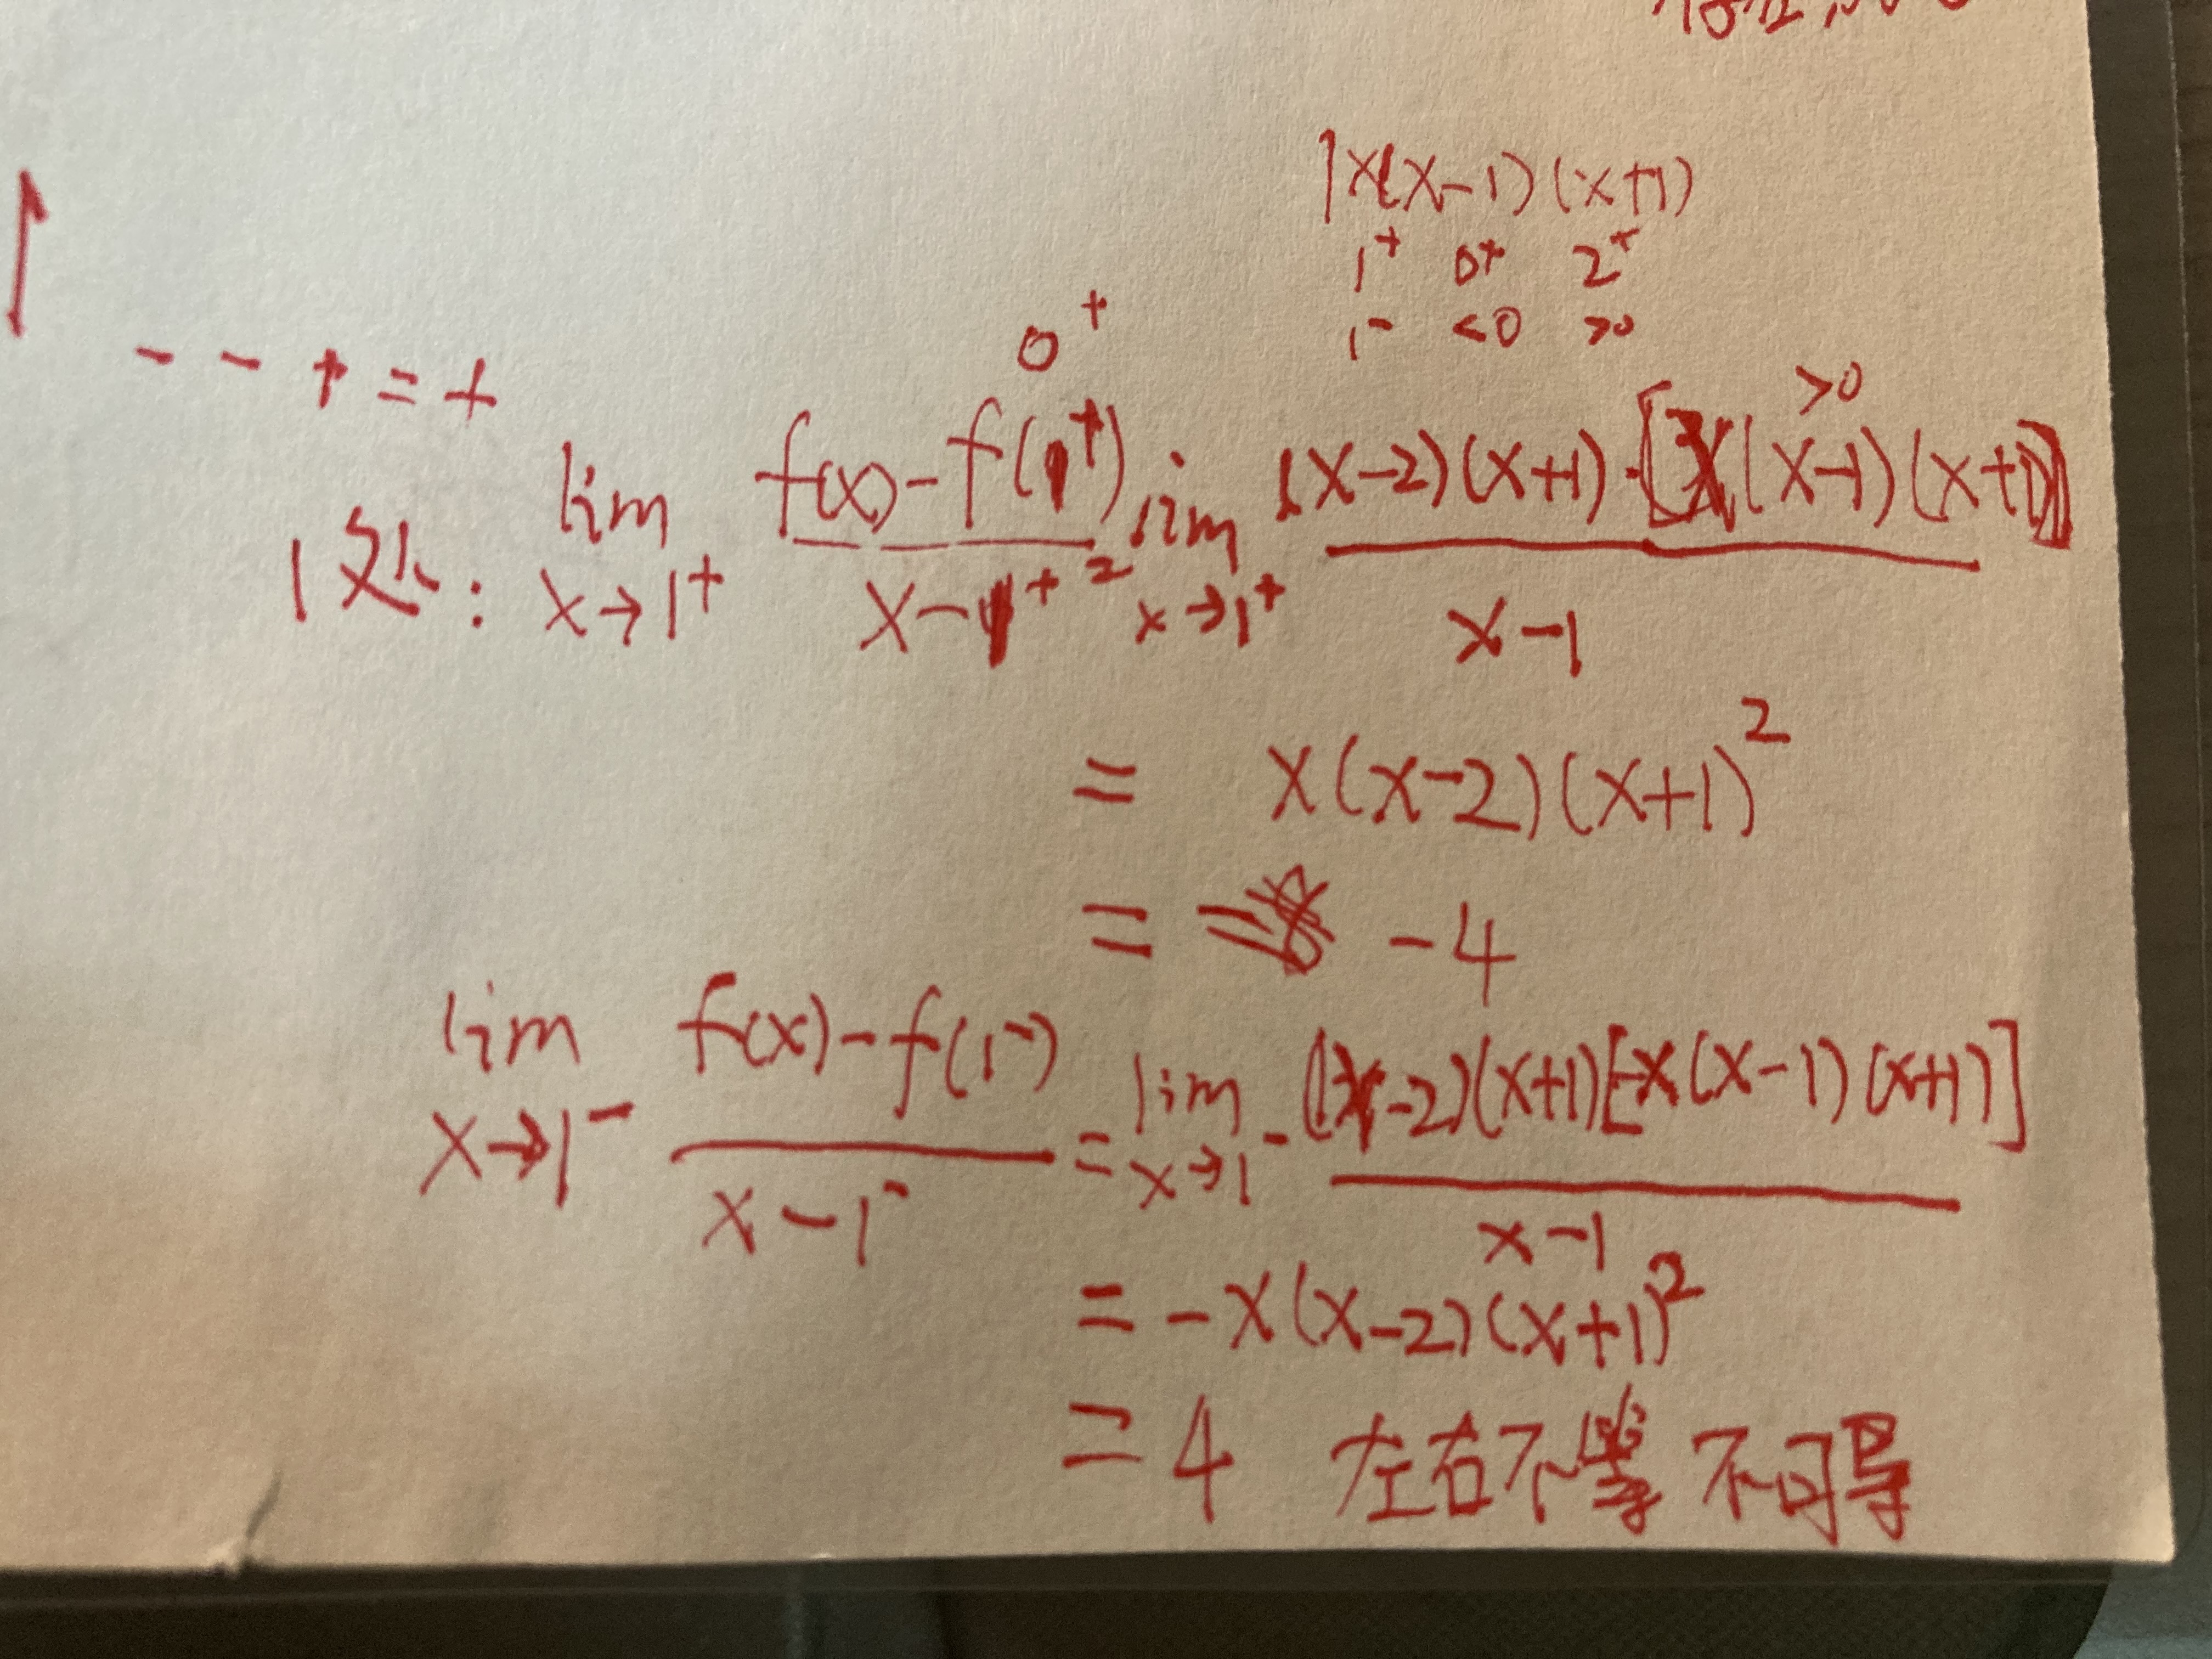 |x(x-1)(x+1)
1⁺ 0⁺ 2⁺
1⁻ <0 >0
0⁺
- - + = +
>0
1处: lim x→1⁺ (f(x)-f(1⁺))/(x-1⁺) = lim x→1⁺ ((x-2)(x+1)·[x(x-1)(x+1)])/(x-1)
= x(x-2)(x+1)²
= -4
lim x→1⁻ (f(x)-f(1⁻))/(x-1⁻) = lim x→1⁻ ((x-2)(x+1)[-x(x-1)(x+1)])/(x-1)
= -x(x-2)(x+1)²
= 4 左右不等 不可导